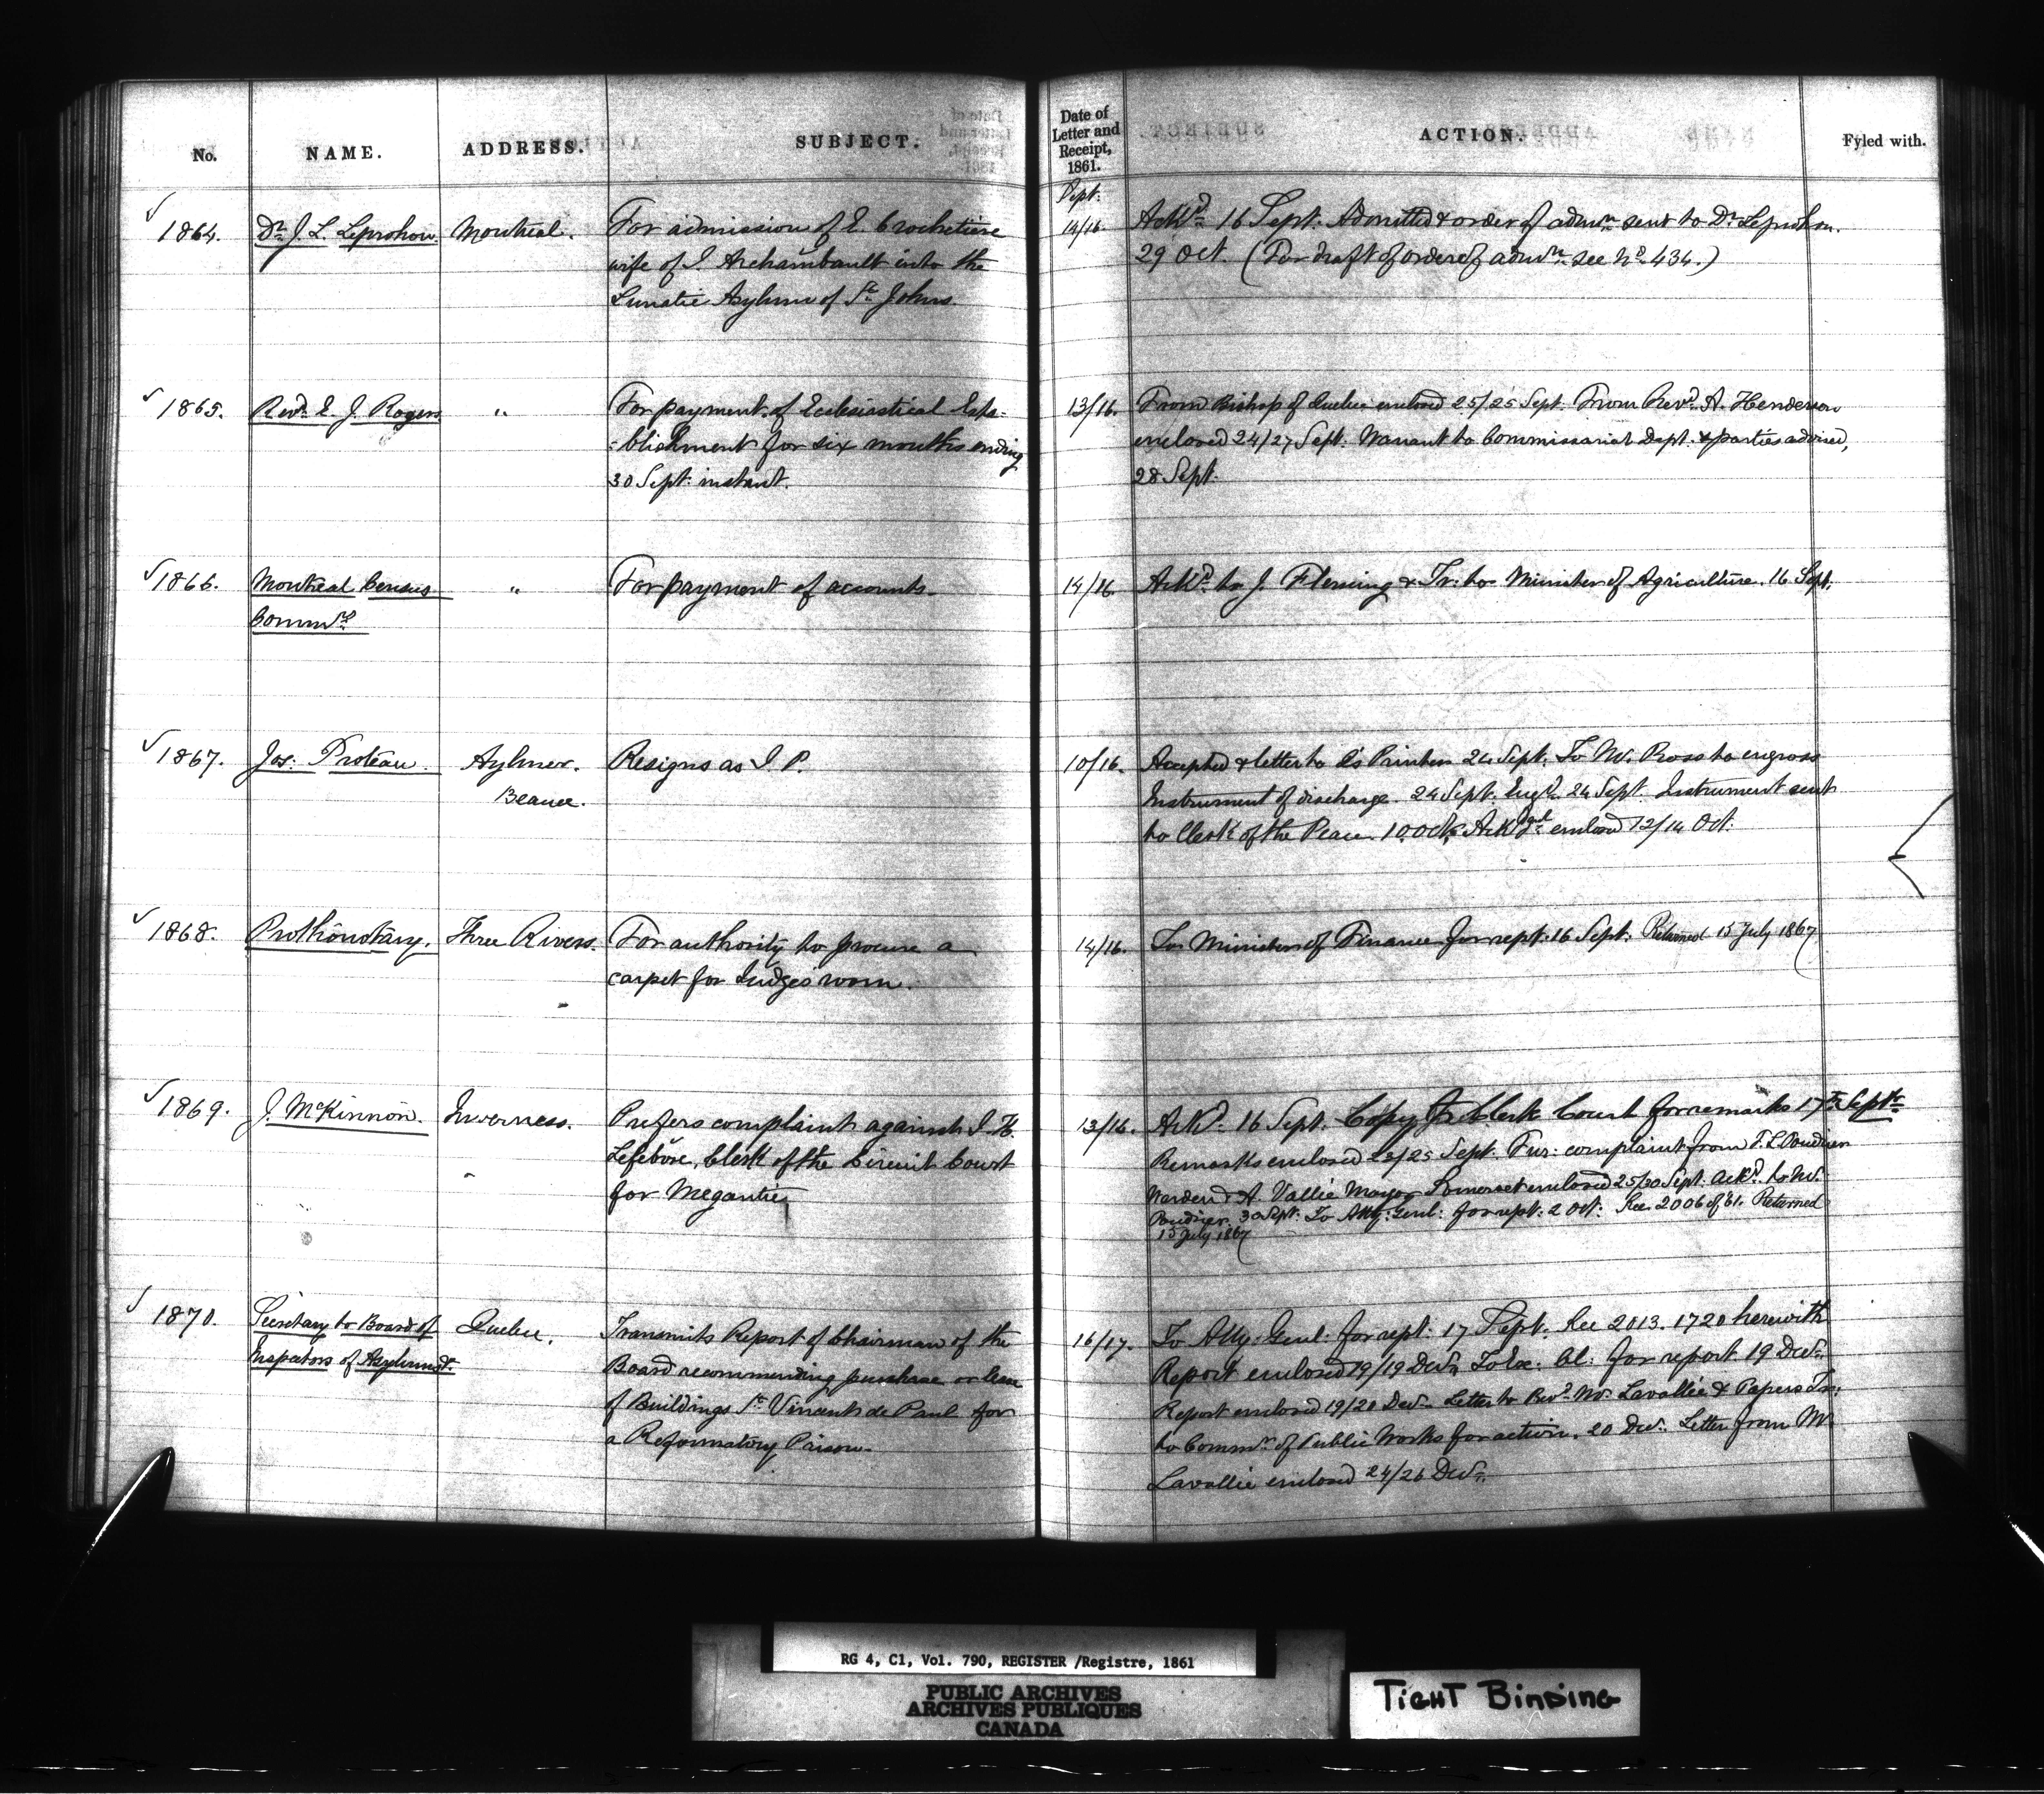 No. NAME. ADDRESS. SUBJECT. Date of Letter and Receipt, 1861. ACTION. Fyled with.
Sept.
1864. Dr. J. L. Leprohon. Montreal. For admission of E. Crochetiere
wife of J. Archambault into the
Lunatic Asylum of St. Johns.
14/16. Ackd. 16 Sept. Admitted & order of admn. sent to Dr. Leprohon.
29 Oct. (For draft of order of admn. see No. 434.)
1865. Revd. E. J. Rogers. " For payment of Ecclesiastical Esta-
-blishment for six months ending
30 Sept. instant.
13/16. From Bishop of Quebec enclosed 25/25 Sept. From Revd. A. Henderson
enclosed 24/27 Sept. Warrant to Commissariat Dept. & parties advised,
28 Sept.
1866. Montreal Census
Commrs.
" For payment of accounts.
14/16. Ackd. to J. Fleming & Tr: to Minister of Agriculture. 16 Sept.
1867. Jos: Proteau. Aylmer.
Beauce.
Resigns as J. P.
10/16. Accepted & letter to Q's Printers 24 Sept. To Mr. Ross to engross
Instrument of discharge. 24 Sept. Engd. 24 Sept. Instrument sent
to Clerk of the Peace. 10 Oct. Ackdgmt. enclosed 12/14 Oct.
1868. Prothonotary. Three Rivers. For authority to procure a
carpet for Judges' room.
14/16. To Minister of Finance for rept: 16 Sept: Returned 15 July 1867
1869. J. McKinnon. Inverness. Prefers complaint against J. H.
Lefebvre, Clerk of the Circuit Court
for Megantic.
13/16. Ackd. 16 Sept. Copy to Clerk Court for remarks 17th Septr.
Remarks enclosed 23/25 Sept. Fur: complaint from F. L. Poudrier
Warden & A. Vallie Mayor Somerset enclosed 25/30 Sept. Ackd. to Mr.
Poudrier. 30 Sept. To Atty: Genl: for rept: 2 Oct: See 2006 of '61. Returned
15 July 1867
1870. Secretary to Board of
Inspectors of Asylums &c.
Quebec. Transmits Report of Chairman of the
Board recommending purchase or lease
of Buildings St. Vincent de Paul for
a Reformatory Prison.
16/17. To Atty: Genl: for rept: 17 Sept. See 2013. 1720 herewith
Report enclosed 19/19 Decr. To Ex: Cl: for report 19 Decr.
Report enclosed 19/20 Decr. Letter to Revd. Mr. Lavallée & Papers Tr:
to Commr. of Public Works for action. 20 Decr. Letter from Mr.
Lavallée enclosed 24/26 Decr.
RG 4, C1, Vol. 790, REGISTER /Registre, 1861
PUBLIC ARCHIVES
ARCHIVES PUBLIQUES
CANADA
TIGHT BINDING